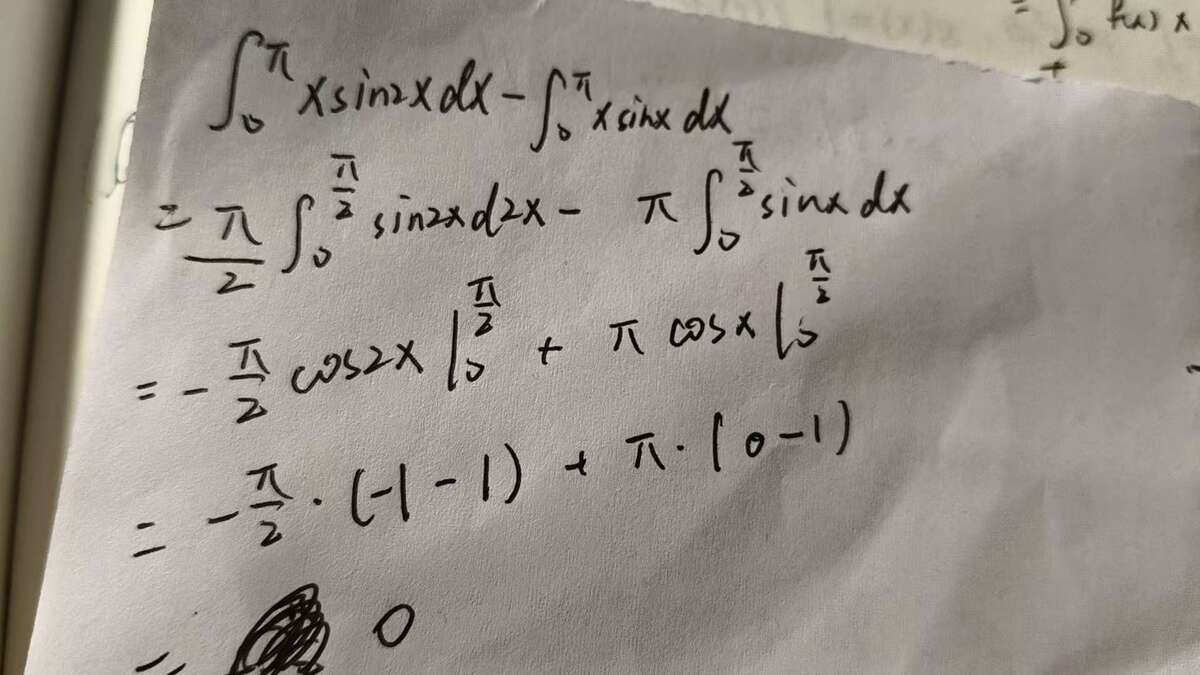 = ∫₀ f(x) x
∫₀^π x sin2x dx - ∫₀^π x sinx dx
= π/2 ∫₀^(π/2) sin2x d2x - π ∫₀^(π/2) sinx dx
= - π/2 cos2x |₀^(π/2) + π cosx |₀^(π/2)
= - π/2 · (-1 - 1) + π · (0 - 1)
= 0